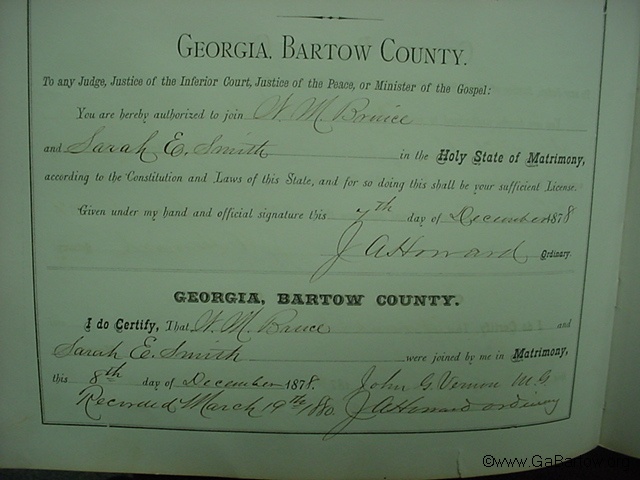 GEORGIA, BARTOW COUNTY.
To any Judge, Justice of the Inferior Court, Justice of the Peace, or Minister of the Gospel:
You are hereby authorized to join W. M Bruice
and Sarah E. Smith in the Holy State of Matrimony,
according to the Constitution and Laws of this State, and for so doing this shall be your sufficient License.
Given under my hand and official signature this 7th day of December 1878
J A Howard Ordinary.
GEORGIA, BARTOW COUNTY.
I do Certify, That W. M. Bruce and
Sarah E. Smith were joined by me in Matrimony,
this 8th day of December 1878. John G Vernon M.G
Recorded March 19th 1880. J A Howard ordinary
©www.GaBartow